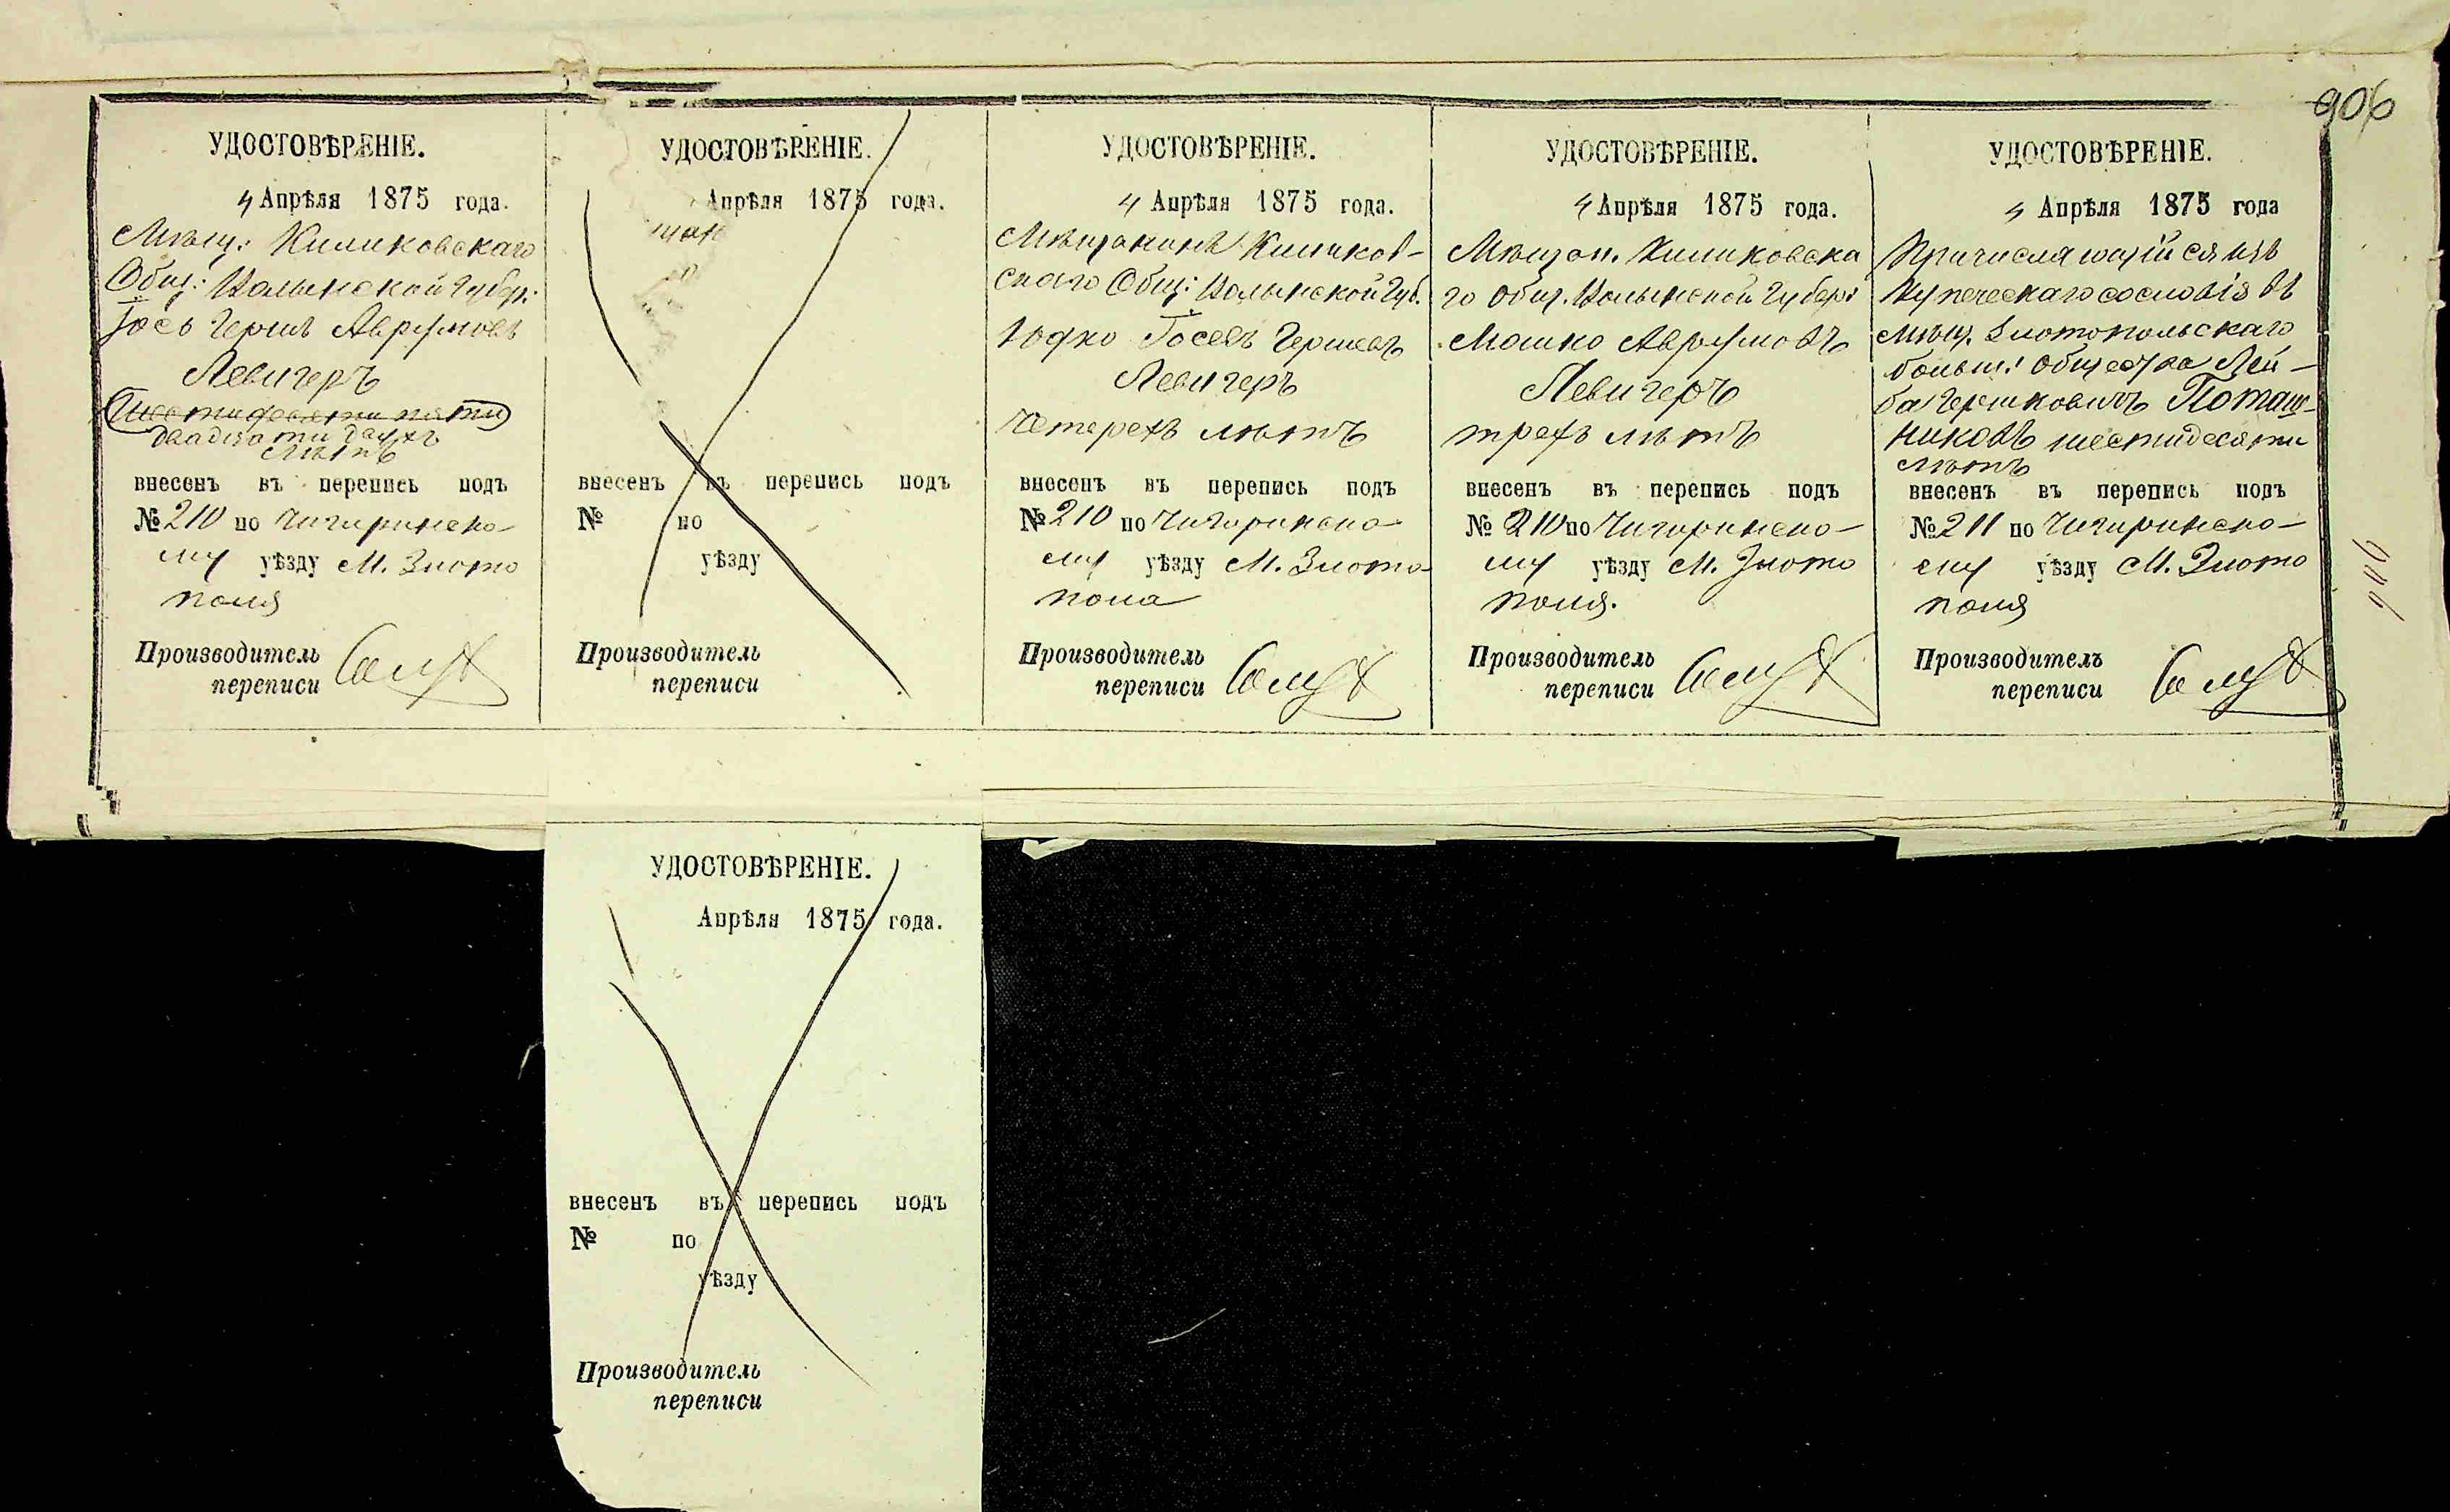 906
УДОСТОВѢРЕНІЕ.
4 Апрѣля 1875 года.
Мѣщ: Киликовскаго
Общ: Волынской Губер:
Іось Гершъ Аврумовъ
Левигеръ
Шестидесяти пяти
двадцати двухъ
лѣтъ
внесенъ въ перепись подъ
№ 210 по Чигиринско-
му уѣзду М. Злото
поля
Производитель
переписи
УДОСТОВѢРЕНІЕ.
Апрѣля 1875 года.
внесенъ въ перепись подъ
№ по
уѣзду
Производитель
переписи
УДОСТОВѢРЕНІЕ.
4 Апрѣля 1875 года.
Мѣщанинъ Киликов-
скаго Общ: Волынской Губ.
Юдко Іосевъ Гершевъ
Левигеръ
Четерехъ лѣтъ
внесенъ въ перепись подъ
№ 210 по Чигиринско-
му уѣзду М. Злото-
поля
Производитель
переписи
УДОСТОВѢРЕНІЕ.
4 Апрѣля 1875 года.
Мѣщан. Киликовска
го Общ. Волынской Губер:
Мошко Аврумовъ
Левигеръ
трехъ лѣтъ
внесенъ въ перепись подъ
№ 210 по Чигиринско-
му уѣзду М. Злото
поля.
Производитель
переписи
УДОСТОВѢРЕНІЕ.
4 Апрѣля 1875 года
Причисляющійся изъ
Купеческаго сословія въ
мѣщ. Злотопольскаго
больш: общества Лей-
ба Гершковичъ Поташ-
никовъ шестидесяти
лѣтъ
внесенъ въ перепись подъ
№ 211 по Чигиринско-
му уѣзду М. Злото
поля
Производитель
переписи
906
УДОСТОВѢРЕНІЕ.
Апрѣля 1875 года.
внесенъ въ перепись подъ
№ по
уѣзду
Производитель
переписи